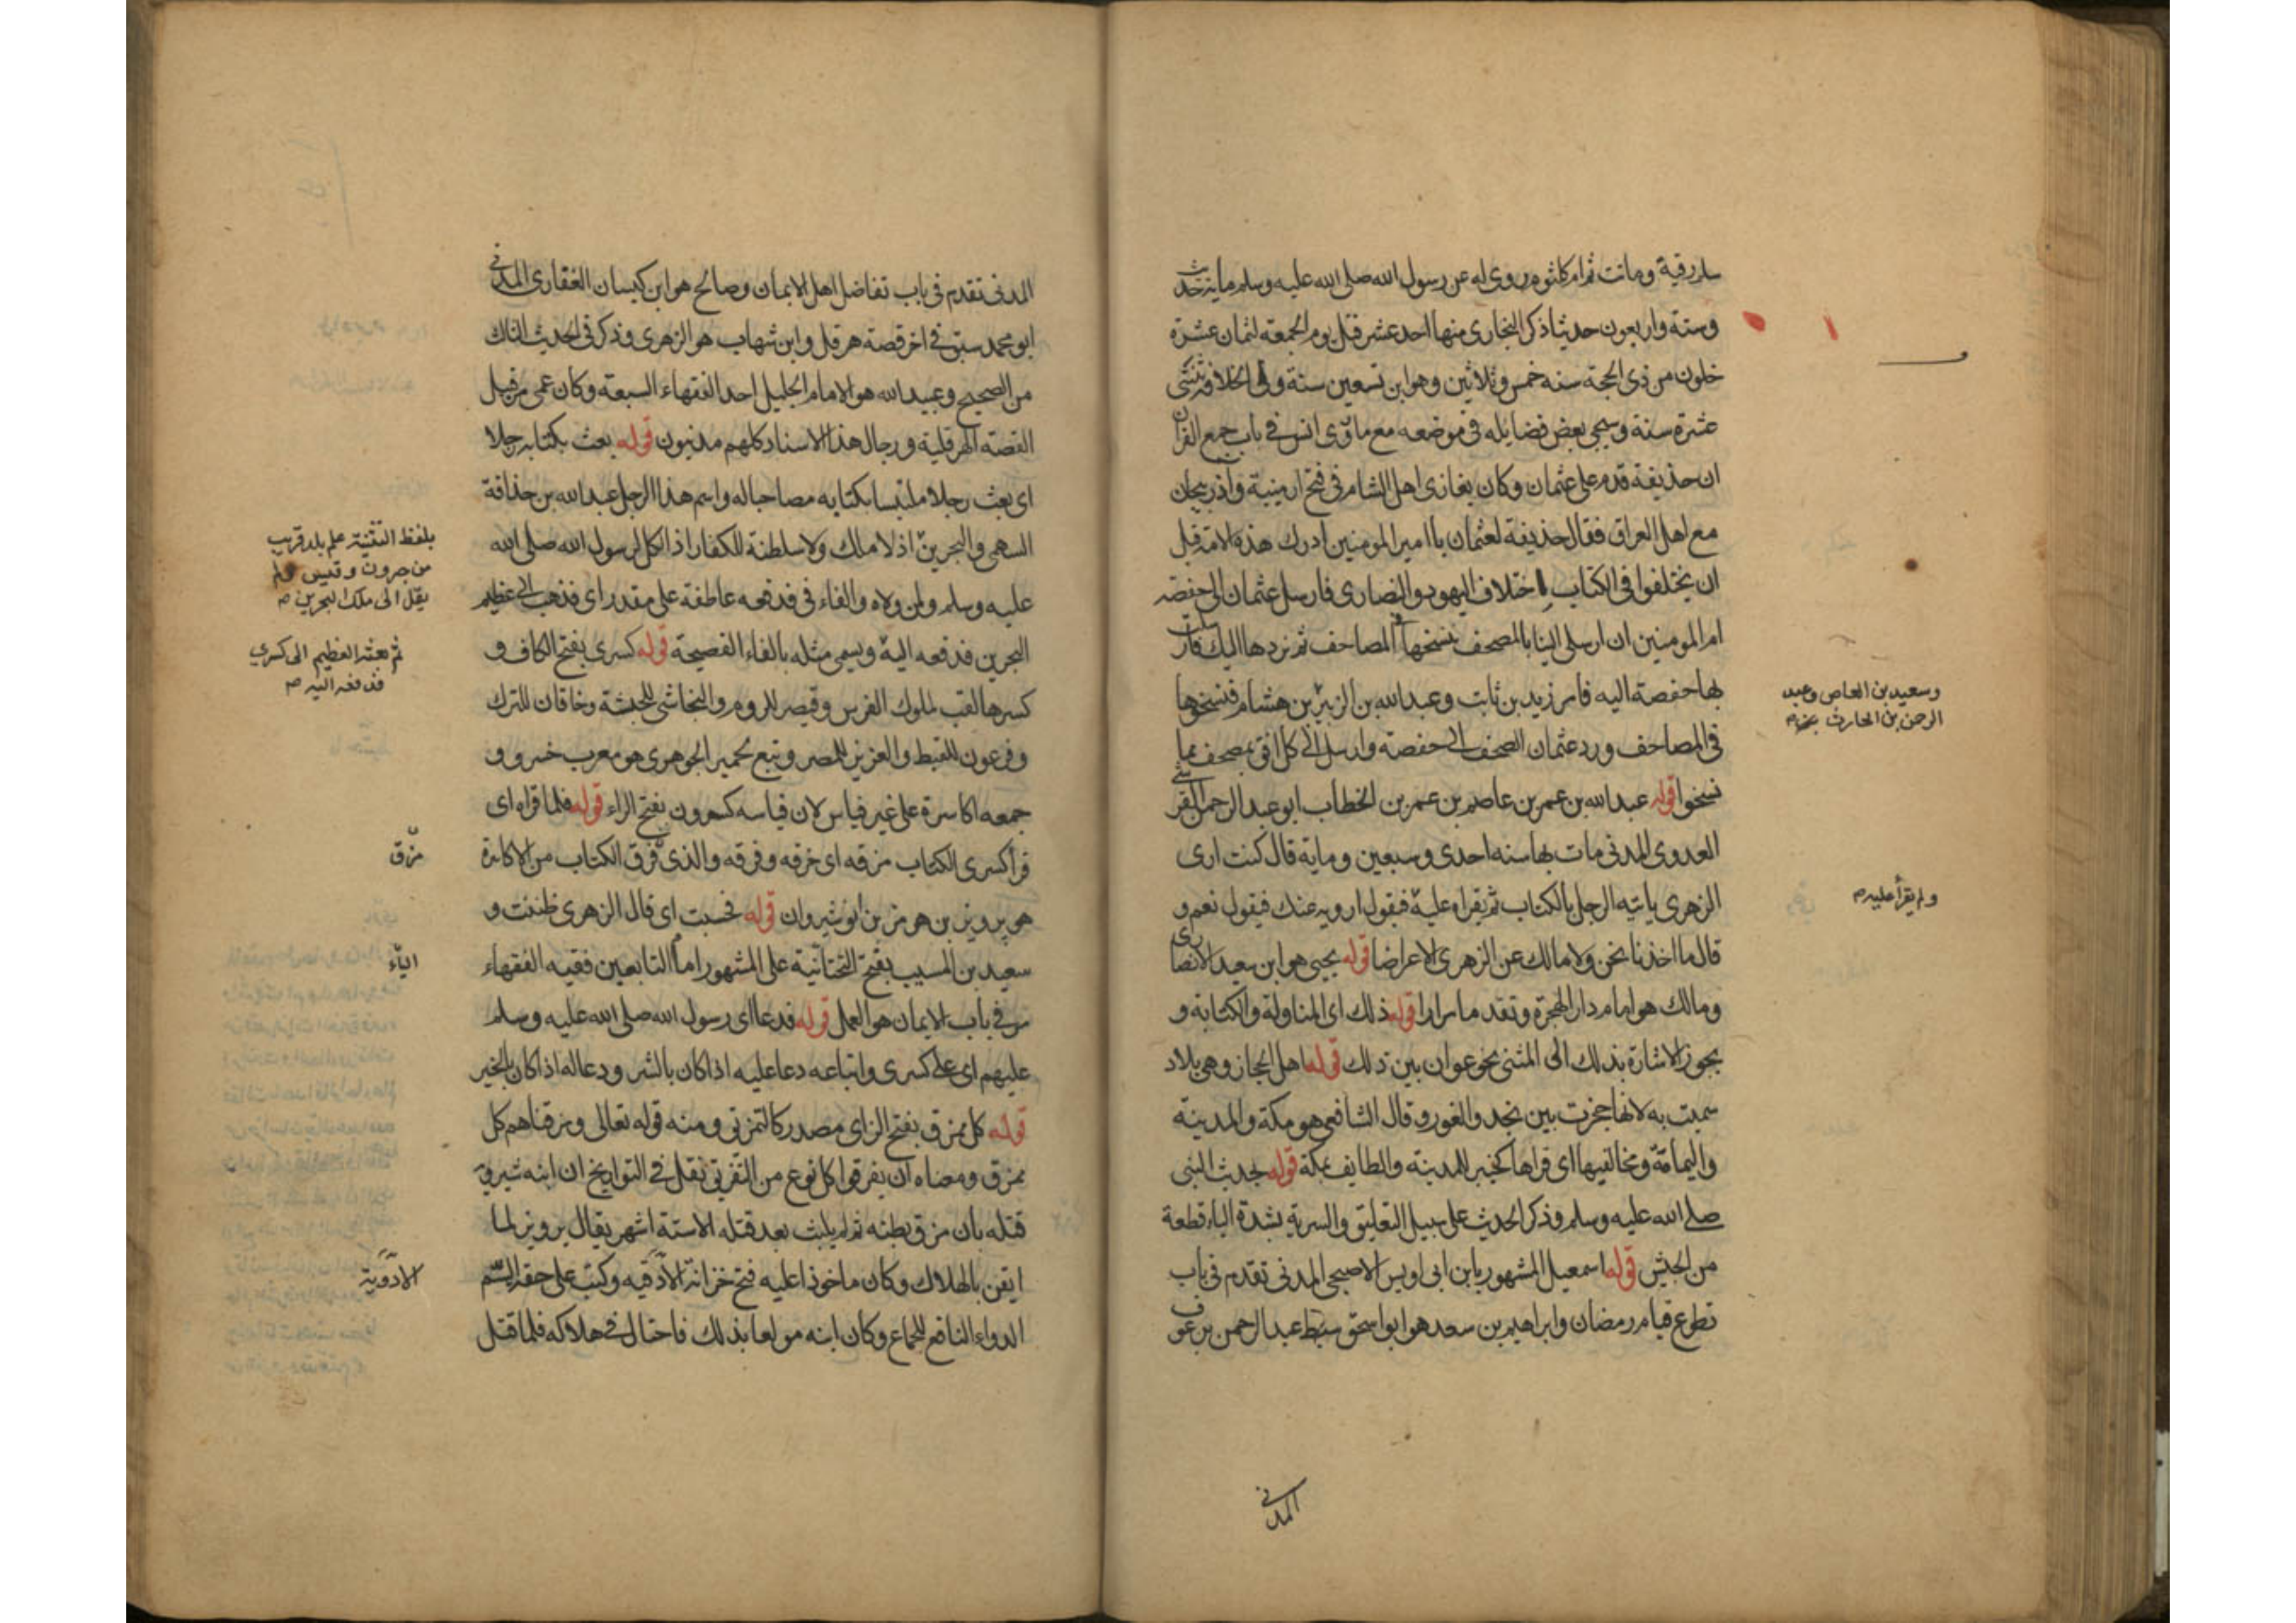 سلم رقية وماتت ثم ام كلثوم روى له عن رسول الله صلى الله عليه وسلم ماية حديث
وستة واربعون حديثا ذكر البخارى منها احد عشر قتل يوم الجمعة لثمان عشرة
خلون من ذى الحجة سنه خمس وثلاثين وهو ابن تسعين سنة وولى الخلافة ثنتى
عشرة سنة وسيجى بعض فضايله فى موضعه مع ماروى انس فى باب جمع القران
ان حذيفة قدم على عثمان وكان يغازى اهل الشام فى فتح ارمينية واذربيجان
مع اهل العراق فقال حذيفة لعثمان يا امير المومنين ادرك هذه الامة قبل
ان يختلفوا فى الكتاب اختلاف اليهود والنصارى فارسل عثمان الى حفصة
ام المومنين ان ارسلى الينا بالمصحف ننسخها فى المصاحف ثم نردها اليك فارسلت
بها حفصة اليه فامر زيد بن ثابت وعبد الله بن الزبير بن هشام فنسخوها
وسعيد بن العاص وعبد
الرحمن بن الحارث
فى المصاحف ورد عثمان الصحف الى حفصة وارسل الى كل افق بمصحف مما
نسخوا قوله عبد الله بن عمر بن عاصم بن عمر بن الخطاب ابو عبد الرحمن القرشى
العدوى المدنى مات بها سنه احدى وسبعين وماية قال كنت ارى
الزهرى ياتيه الرجل بالكتاب ثم يقراه عليه فيقول ارويه عنك فيقول نعم و
ولم يقرأ عليه
قال ما اخذنا نحن ولا مالك عن الزهرى الا عراضا قوله يحيى هو ابن سعيد الانصارى
ومالك هو امام دار الهجرة وتقدم مرارا قوله ذلك اى المناولة والكتابة و
يجوز الاشارة بذلك الى المثنى نحو عوان بين ذلك قوله اهل الحجاز وهى بلاد
سميت به لانها حجزت بين نجد والغور وقال الشافعى هو مكة والمدينة
واليمامة ومخاليفها اى قراها كخيبر للمدينه والطايف لمكة قوله لحديث النبى
صلى الله عليه وسلم وذكر الحديث على سبيل التعليق والسرية بشدة الياء قطعة
من الجيش قوله اسمعيل المشهور بابن ابى اويس الاصبحى المدنى تقدم فى باب
تطوع قيام رمضان وابراهيم بن سعد هو ابو اسحق سبط عبد الرحمن بن عوف
المدنى
المدنى تقدم فى باب تفاضل اهل الايمان وصالح هو ابن كيسان الغفارى المدنى
ابو محمد سبق فى اخر قصة هرقل وابن شهاب هو الزهرى وذكر فى الحديث الثالث
من الصحيح وعبيد الله هو الامام الجليل احد الفقهاء السبعة وكان عمى من قبل
القصة الهرقلية ورجال هذا الاسناد كلهم مدنيون قوله بعث بكتابه رجلا
اى بعث رجلا ملتبسا بكتابه مصاحبا له واسم هذا الرجل عبد الله بن حذافة
السهمى والبحرين اذ لا ملك ولا سلطنة للكفار اذ الكل لرسول الله صلى الله
بلفظ التثنية علم بلد قريب
من جرون وقيس ولم
يقل الى ملك البحرين
عليه وسلم ولمن ولاه والفاء فى فدفعه عاطفة على مقدر اى فذهب الى عظيم
البحرين فدفعه اليه ويسمى مثله بالفاء الفصيحة قوله كسرى بفتح الكاف و
ثم بعثه العظيم الى كسرى
فدفعه اليه
كسرها لقب لملوك الفرس وقيصر للروم والنجاشى للحبشة وخاقان للترك
وفرعون للقبط والعزيز للمصر وتبع لحمير الجوهرى هو معرب خسرو و
جمعه اكاسرة على غير قياس لان قياسه كسرون بفتح الراء قوله فلما قراه اى
قرأ كسرى الكتاب مزقه اى خرقه وفرقه والذى فرق الكتاب من الاكاسرة
مزق
هو پرويز بن هرمز بن انوشيروان قوله فحسبت اى قال الزهرى ظننت و
سعيد بن المسيب بفتح التحتانية على المشهور امام التابعين فقيه الفقهاء
الياء
مر فى باب الايمان هو العمل قوله فدعا اى رسول الله صلى الله عليه وسلم
عليهم اى على كسرى واتباعه دعا عليه اذا كان بالشر ودعا له اذا كان بالخير
قوله كل ممزق بفتح الزاى مصدر كالتمزيق ومنه قوله تعالى ومزقناهم كل
ممزق ومعناه ان يفرقوا كل نوع من التفريق نقل فى التواريخ ان ابنه شيرويه
قتله بان مزق بطنه ثم لم يلبث بعد قتله الا ستة اشهر يقال پرويز لما
ايقن بالهلاك وكان ماخوذا عليه فتح خزانة الادقيه وكتب على حقة السم
الادوية
الدواء النافع للجماع وكان ابنه مولعا بذلك فاحتال فى هلاكه فلما قتل